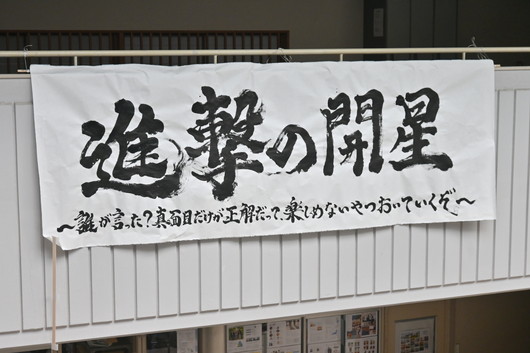 進撃の開星
～誰が言った？真面目だけが正解だって、楽しめないやつおいていくぞ～